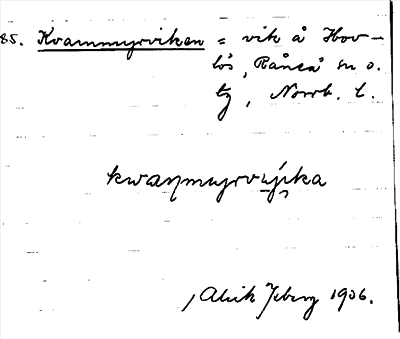 85. Kvarnmyrviken = vik å Hov-
lös, Råneå sn o.
tg, Norrb. l.
kwaṇmyrvijka
Alrik Isberg 1906.